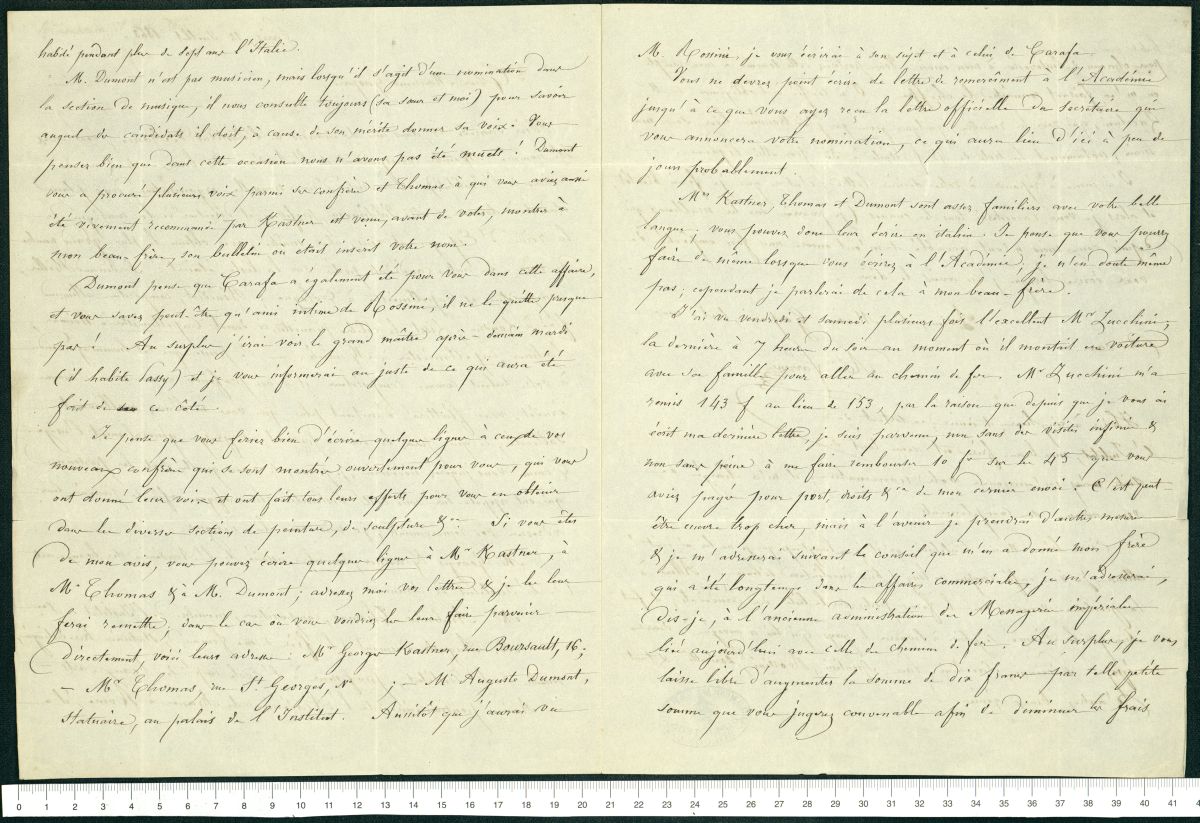 habité pendant plus de sept ans l'Italie.
M. Dumont n'est pas musicien, mais lorsqu'il s'agit d'une nomination dans
la section de musique, il nous consulte toujours (sa sœur et moi) pour savoir
auquel des candidats il doit, à cause de son mérite donner sa voix. Vous
pensez bien que dans cette occasion nous n'avons pas été muets ! Dumont
vous a procuré plusieurs voix parmi ses confrères et Thomas à qui vous aviez aussi
été vivement recommandé par Kastner est venu, avant de voter, montrer à
mon beau-frère, son bulletin où était inscrit votre nom.
Dumont pense que Carafa a également été pour vous dans cette affaire,
et vous savez peut-être qu'ami intime de Rossini, il ne le quitte presque
pas ! Au surplus j'irai voir le grand maître après-demain mardi
(il habite Passy) et je vous informerai au juste de ce qui aura été
fait de ce côté.
Je pense que vous feriez bien d'écrire quelques lignes à ceux de vos
nouveaux confrères qui se sont montrés ouvertement pour vous, qui vous
ont donné leur voix et ont fait tous leurs efforts pour vous en obtenir
dans les diverses sections de peinture, de sculpture &ca. Si vous êtes
de mon avis, vous pouvez écrire quelques lignes à Mr Kastner, à
Mr Thomas & à M. Dumont ; adressez moi vos lettres & je les leur
ferai remettre ; dans le cas où vous voudriez les leur faire parvenir
directement, voici leurs adresses : Mr Georges Kastner, rue Boursault, 16 ;
— Mr Thomas, rue St Georges, No ; — M. Auguste Dumont,
Statuaire, au palais de l'Institut. Aussitôt que j'aurai vu
M. Rossini, je vous écrirai à son sujet et à celui de Carafa.
Vous ne devrez point écrire de lettre de remerciment à l'Académie
jusqu'à ce que vous ayez reçu la lettre officielle du secrétaire qui
vous annoncera votre nomination, ce qui aura lieu d'ici à peu de
jours probablement.
Mrs Kastner, Thomas et Dumont sont assez familiers avec votre belle
langue ; vous pouvez donc leur écrire en italien. Je pense que vous pourrez
faire de même lorsque vous écrirez à l'Académie, je n'en doute même
pas ; cependant je parlerai de cela à mon beau-frère.
J'ai vu vendredi et samedi plusieurs fois l'excellent Mr Zucchini,
la dernière à 7 heures du soir au moment où il montait en voiture
avec sa famille pour aller au chemin de fer. Mr Zucchini m'a
remis 143 f au lieu de 153, par la raison que depuis que je vous ai
écrit ma dernière lettre, je suis parvenu, non sans des visites infinies &
non sans peine à me faire rembourser 10 fr sur les 45 que vous
aviez payés pour port, droits &ca de mon dernier envoi. C'est peut
être encore trop cher, mais à l'avenir je prendrai d'autres mesures
& je m'adresserai suivant le conseil que m'en a donné mon frère
qui a été longtemps dans les affaires commerciales, je m'adresserai,
dis-je, à l'ancienne administration des Messageries impériales
liée aujourd'hui avec celle du chemin de fer. Au surplus, je vous
laisse libre d'augmenter la somme de dix francs par telle petite
somme que vous jugerez convenable afin de diminuer les frais